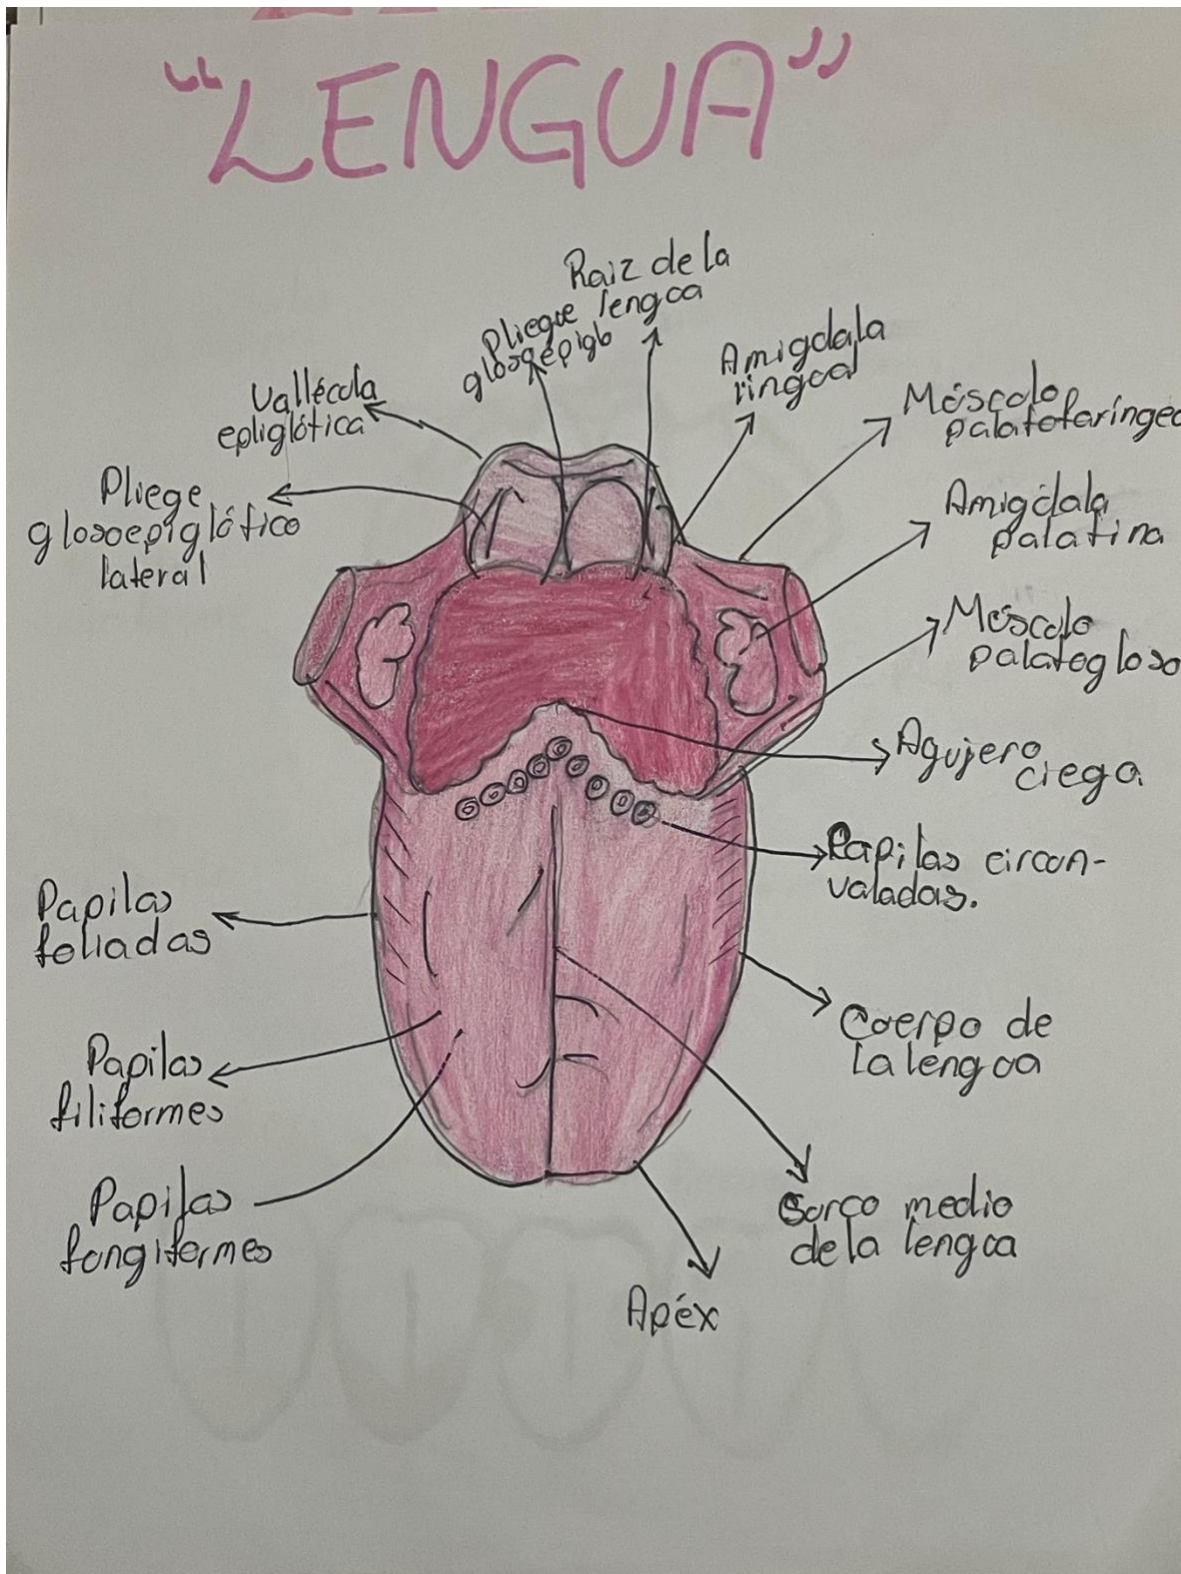 "LENGUA"
Raiz de la
lengua
Pliegue
glosoepiglo
Amigdala
lingual
Vallécula
epliglótica
Músculo
palatofaríngeo
Pliege
glosoepiglótico
lateral
Amigdala
palatina
Músculo
palatogloso
Agujero
ciego
Papilas circun-
valadas.
Papilas
foliadas
Cuerpo de
la lengua
Papilas
filiformes
Papilas
fungiformes
Surco medio
de la lengua
Apéx